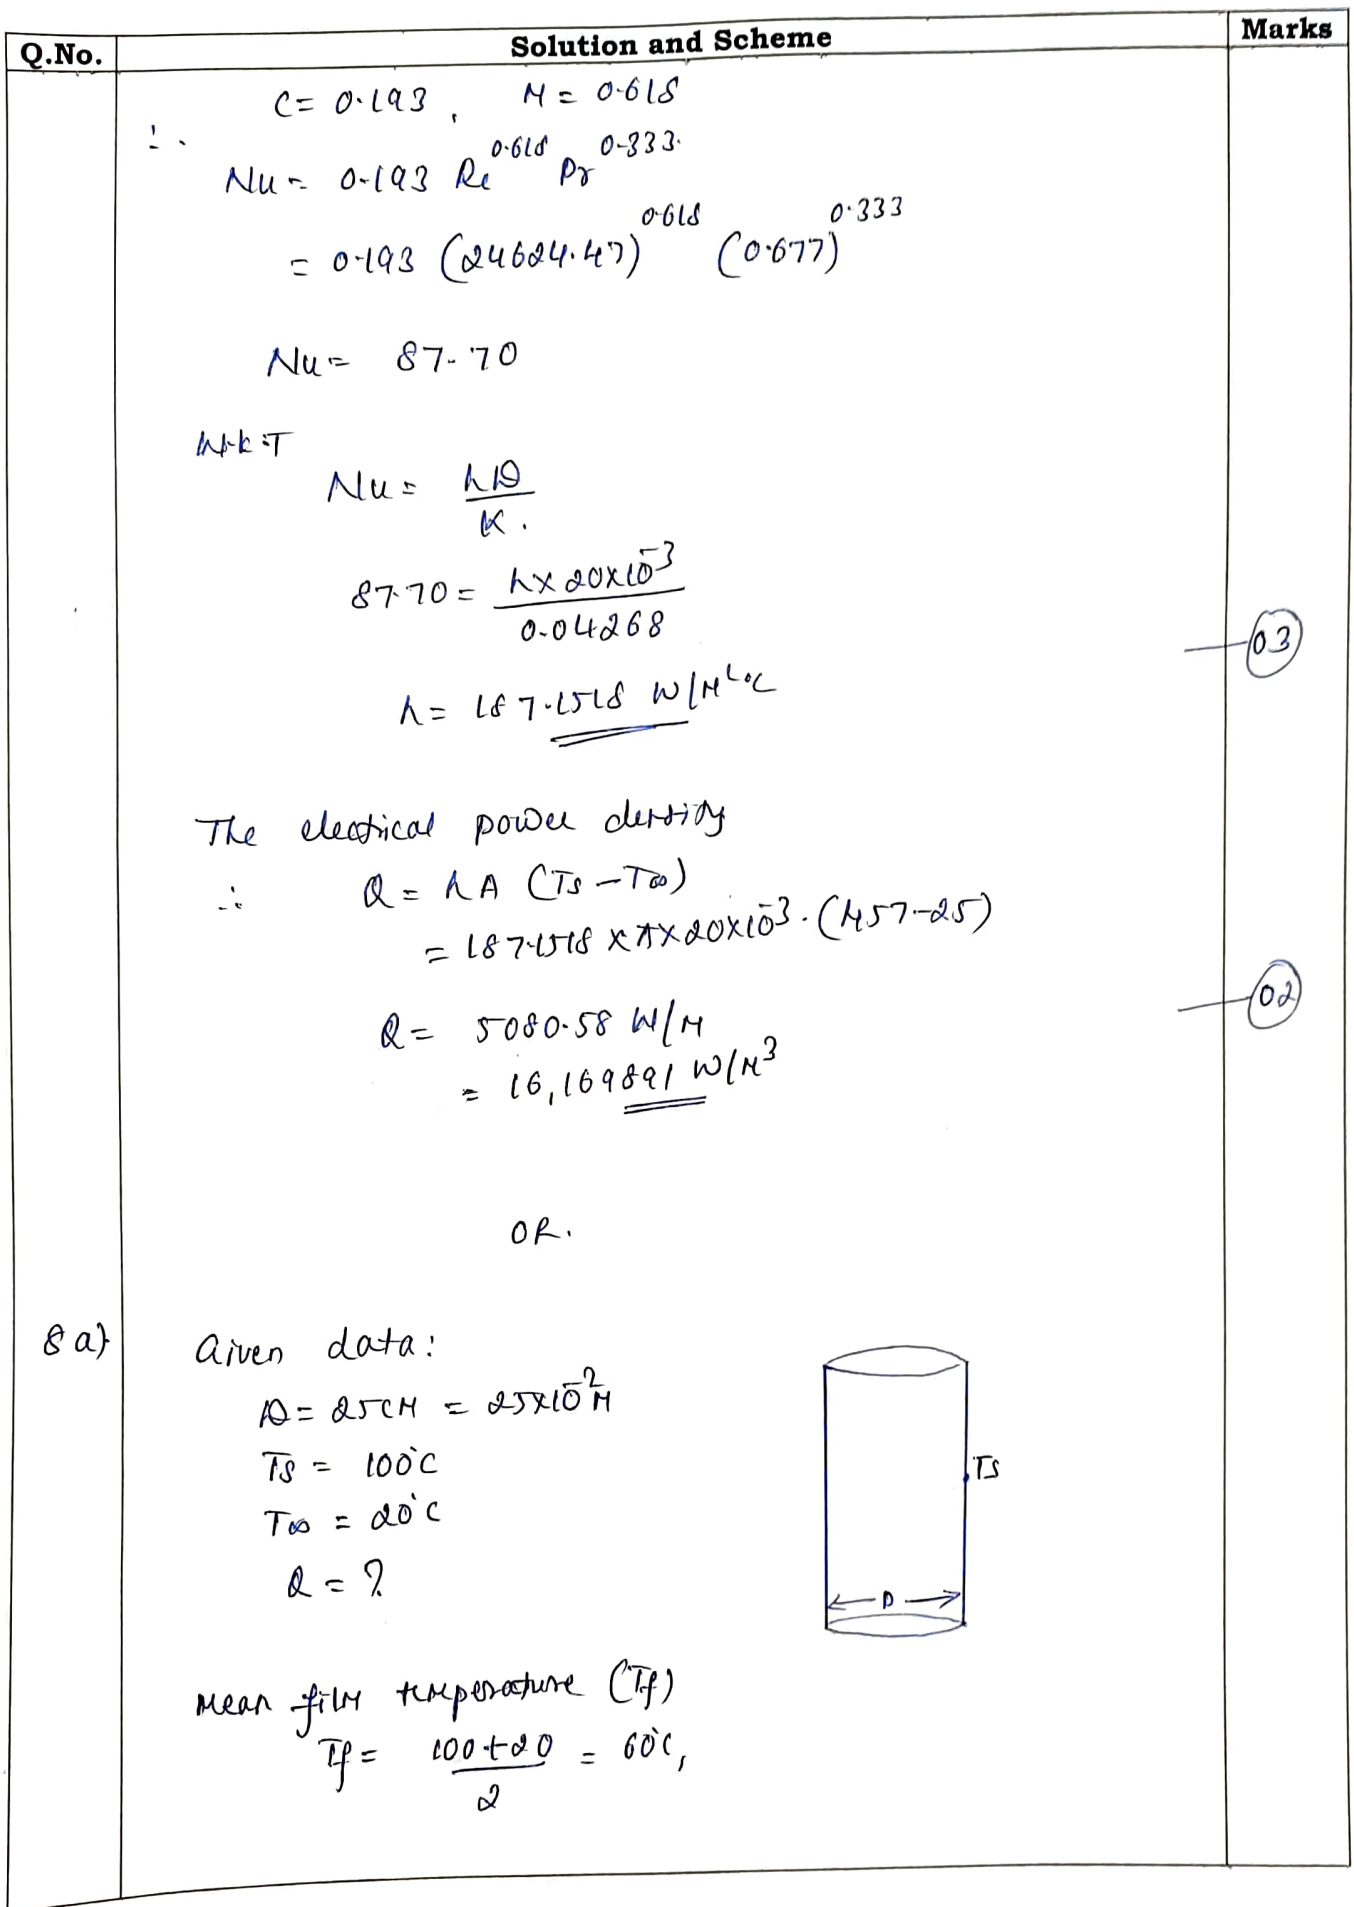 Q.No. Solution and Scheme Marks
C = 0.193, M = 0.618
∴
Nu = 0.193 Re^0.618 Pr^0.333
= 0.193 (24624.47)^0.618 (0.677)^0.333
Nu = 87.70
W.k.T
Nu = hD/K.
87.70 = h×20×10^-3/0.04268
03
h = 187.1518 W/M²°C
The electrical power density
∴ Q = hA (Ts − T∞)
= 187.1518 × π × 20×10^-3 . (457-25)
02
Q = 5080.58 W/M
= 16,169891 W/M³
OR.
8 a) Given data:
D = 25CM = 25×10^-2 M
Ts = 100°C
Ts
T∞ = 20°C
Q = ?
D
Mean film temperature (Tf)
Tf = 100+20/2 = 60°C,